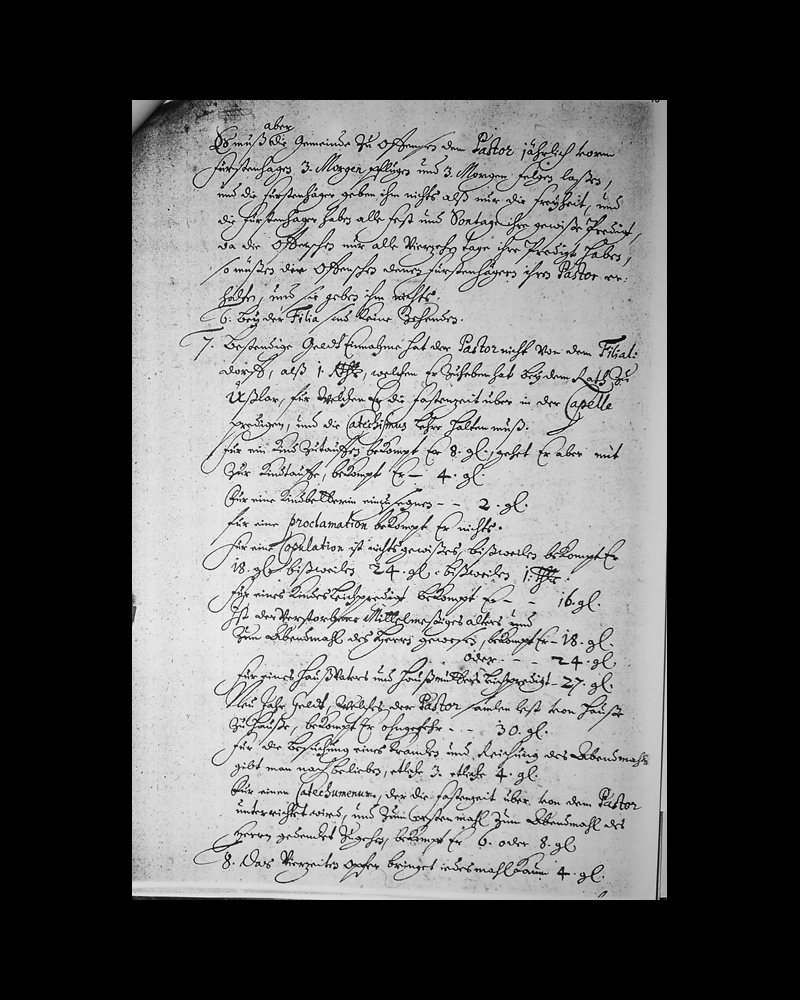 aber
So muß die Gemeinde zu Offensen dem Pastor jährlich vorm
fürstenhagen 3. Morgen pflügen und 3. Morgen felgen laßen,
und die fürstenhäger geben ihm nichts alß nur die freyheit, und
die fürstenhäger haben alle fest und Sontage ihre gewiße Predigt,
da die Offenschen nur alle Vierzehn tage ihre Predigt haben,
so müßen die Offenschen denen fürstenhägern ihren Pastor er-
halten, und sie geben ihm nichts.
6. bey der Filia sind keine Zehenden.
7. Bestendige Geldt Einnahme hat der Pastor nicht von dem Filial-
dorff, alß 1. Rthlr, welchen Er zuheben hat bey dem Rath zu
Ußlar, für welchen Er die fastenzeit über in der Capelle
predigen, und die Catechismus lehre halten muß.
für ein Kind zutauffen bekompt Er 8. gl. gehet Er aber mit
zur Kindtauffe, bekompt Er — 4. gl
für eine Kindbetterin einzusegnen - - 2. gl.
für eine proclamation bekompt Er nichts.
für eine Copulation ist nichts gewißes, bißweilen bekompt Er
18. gl. bißweilen 24. gl. bißweilen 1. Rthlr.
für eines Kindes leichpredigt bekompt Er - - 16. gl.
Ist der Verstorbene Mittelmeßiges alters und
zum Abendmahl des Herrn gewesen, bekompt Er - 18. gl.
oder - - - 24. gl.
für eines Haußvaters und Haußmutter leichpredigt - 27. gl.
Neu Jahr Geldt, welches der Pastor samlen lest von Hauße
zu Hauße, bekompt Er ohngefehr - - 30. gl.
für die besuchung eines Kranken und Reichung des Abendmahls
gibt man nach belieben, etliche 3. etliche 4. gl.
für einen Catechumenum, der die fastenzeit über von dem Pastor
unterrichtet wird, und zum ersten mahl zum Abendmahl des
Herrn gedencket zugehen, bekompt Er 6. oder 8. gl
8. Das Vierzeiten opfer bringet iedesmahl kaum 4. gl.